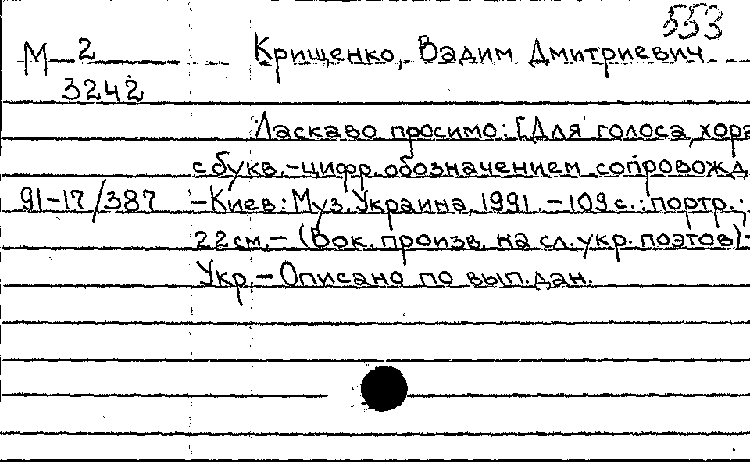 553
М 2 Крищенко, Вадим Дмитриевич
3242
Ласкаво просимо: [Для голоса, хора
с букв.-цифр. обозначением сопровожд
91-17/387 -Киев: Муз. Украина, 1991. -109 с.: портр.;
22 см. - (Вок. произв. на сл. укр. поэтов)-
Укр. - Описано по вып. дан.